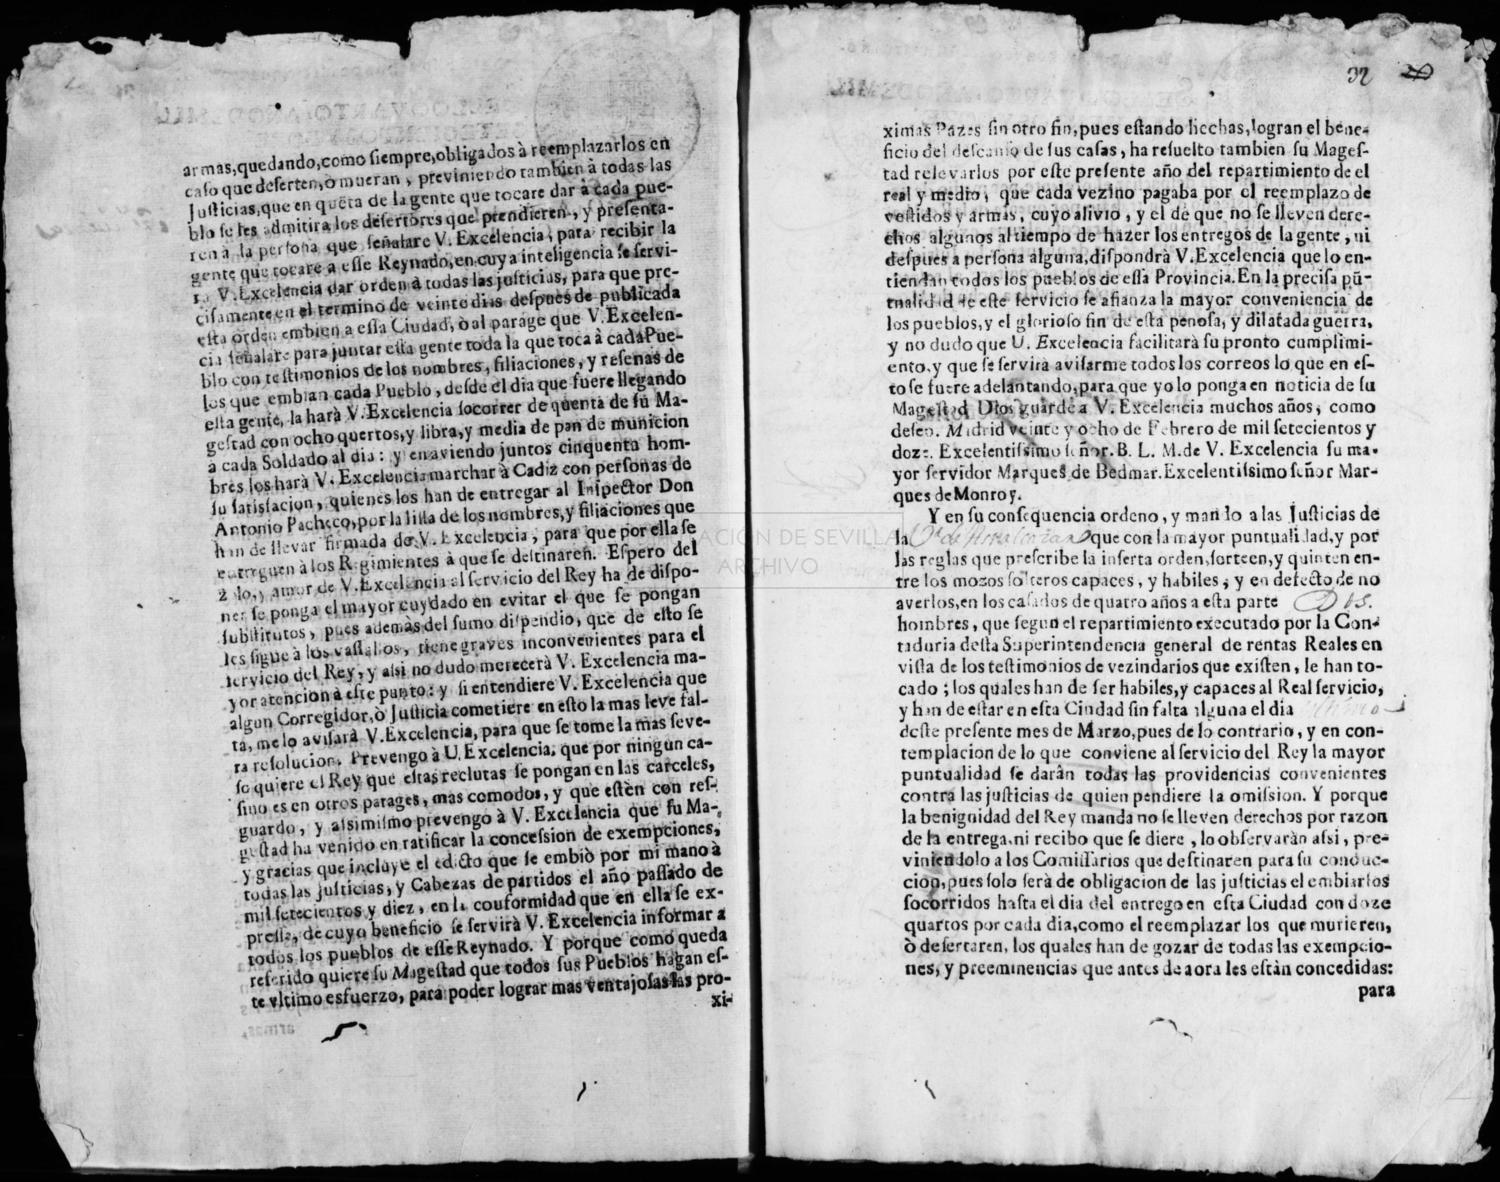 armas,quedando,como siempre,obligados à reemplazarlos en
caso que deserten,ò mueran, previniendo tambien à todas las
Justicias,que en quẽta de la gente que tocare dar à cada pue-
blo se les admitirà los desertores que prendieren, y presenta-
ren à la persona que señalare V.Excelencia, para recibir la
gente que tocare a esse Reynado,en cuya inteligencia se servi-
rà V.Excelencia dar orden à todas las justicias, para que pre-
cisamente en el termino de veinte dias despues de publicada
esta orden embien a essa Ciudad, ò al parage que V.Excelen-
cia señalare para juntar essa gente toda la que toca à cada Pue-
blo con testimonios de los nombres, filiaciones, y reseñas de
los que embian cada Pueblo, desde el dia que fuere llegando
esta gente, la harà V.Excelencia socorrer de quenta de su Ma-
gestad con ocho quertos,y libra,y media de pan de municion
à cada Soldado al dia: y en aviendo juntos cinquenta hom-
bres los harà V.Excelencia marchar à Cadiz con personas de
su satisfacion, quienes los han de entregar al Inspector Don
Antonio Pacheco,por la lista de los nombres,y filiaciones que
han de llevar firmada de V.Excelencia, para que por ella se
entreguen à los Regimientos à que se destinaren. Espero del
zelo,y amor de V.Excelencia al servicio del Rey ha de dispo-
ner se ponga el mayor cuydado en evitar el que se pongan
substitutos, pues además del sumo dispendio, que de esto se
les sigue à los vassallos, tiene graves inconvenientes para el
servicio del Rey, y assi no dudo merecerà V. Excelencia ma-
yor atencion à este punto: y si entendiere V. Excelencia que
algun Corregidor,ò Justicia cometiere en esto la mas leve fal-
ta, me lo avisarà V.Excelencia, para que se tome la mas seve-
ra resolucion. Prevengo à U.Excelencia, que por ningun ca-
so quiere el Rey que estas reclutas se pongan en las carceles,
sino es en otros parages, mas comodos, y que estèn con res-
guardo, y assimismo prevengo à V. Excelencia que su Ma-
gestad ha venido en ratificar la concession de exempciones,
y gracias que incluye el edicto que se embiò por mi mano à
todas las justicias, y Cabezas de partidos el año passado de
mil setecientos y diez, en la couformidad que en ella se ex-
pressa, de cuyo beneficio se servirà V. Excelencia informar a
todos los pueblos de esse Reynado. Y porque como queda
referido quiere su Magestad que todos sus Pueblos hagan es-
te vltimo esfuerzo, para poder lograr mas ventajosas las pro-
xi-
32
ximas Pazes sin otro fin,pues estando hechas,logran el bene-
ficio del descanso de sus casas, ha resuelto tambien su Mages-
tad relevarlos por este presente año del repartimiento de el
real y medio, que cada vezino pagaba por el reemplazo de
vestidos y armas, cuyo alivio, y el de que no se lleven dere-
chos algunos al tiempo de hazer los entregos de la gente, ni
despues a persona alguna,dispondrà V.Excelencia que lo en-
tiendan todos los pueblos de essa Provincia.En la precisa pũ-
tualidad de este servicio se afianza la mayor conveniencia de
los pueblos,y el glorioso fin de esta penosa, y dilatada guerra,
y no dudo que U. Excelencia facilitarà su pronto cumplimi-
ento,y que se servirà avisarme todos los correos lo que en es-
to se fuere adelantando,para que yo lo ponga en noticia de su
Magestad Dios guarde a V. Excelencia muchos años, como
deseo. Madrid veinte y ocho de Febrero de mil setecientos y
doze. Excelentissimo señor. B. L. M. de V. Excelencia su ma-
yor servidor Marques de Bedmar.Excelentissimo señor Mar-
ques de Monroy.
Y en su consequencia ordeno, y mando a las Justicias de
la que con la mayor puntualidad,y por
las reglas que prescribe la inserta orden,sorteen,y quinten en-
tre los mozos solteros capaces, y habiles; y en defecto de no
averlos,en los casados de quatro años a esta parte Dos.
hombres, que segun el repartimiento executado por la Con-
taduria desta Superintendencia general de rentas Reales en
vista de los testimonios de vezindarios que existen, le han to-
cado; los quales han de ser habiles,y capaces al Real servicio,
y han de estar en esta Ciudad sin falta alguna el dia
deste presente mes de Marzo,pues de lo contrario, y en con-
templacion de lo que conviene al servicio del Rey la mayor
puntualidad se daràn todas las providencias convenientes
contra las justicias de quien pendiere la omission. Y porque
la benignidad del Rey manda no se lleven derechos por razon
de la entrega,ni recibo que se diere, lo observaràn assi, pre-
viniendolo a los Comissarios que destinaren para su conduc-
cion,pues solo serà de obligacion de las justicias el embiarlos
socorridos hasta el dia del entrego en esta Ciudad con doze
quartos por cada dia,como el reemplazar los que murieren,
ò desertaren, los quales han de gozar de todas las exempcio-
nes, y preeminencias que antes de aora les estàn concedidas:
para